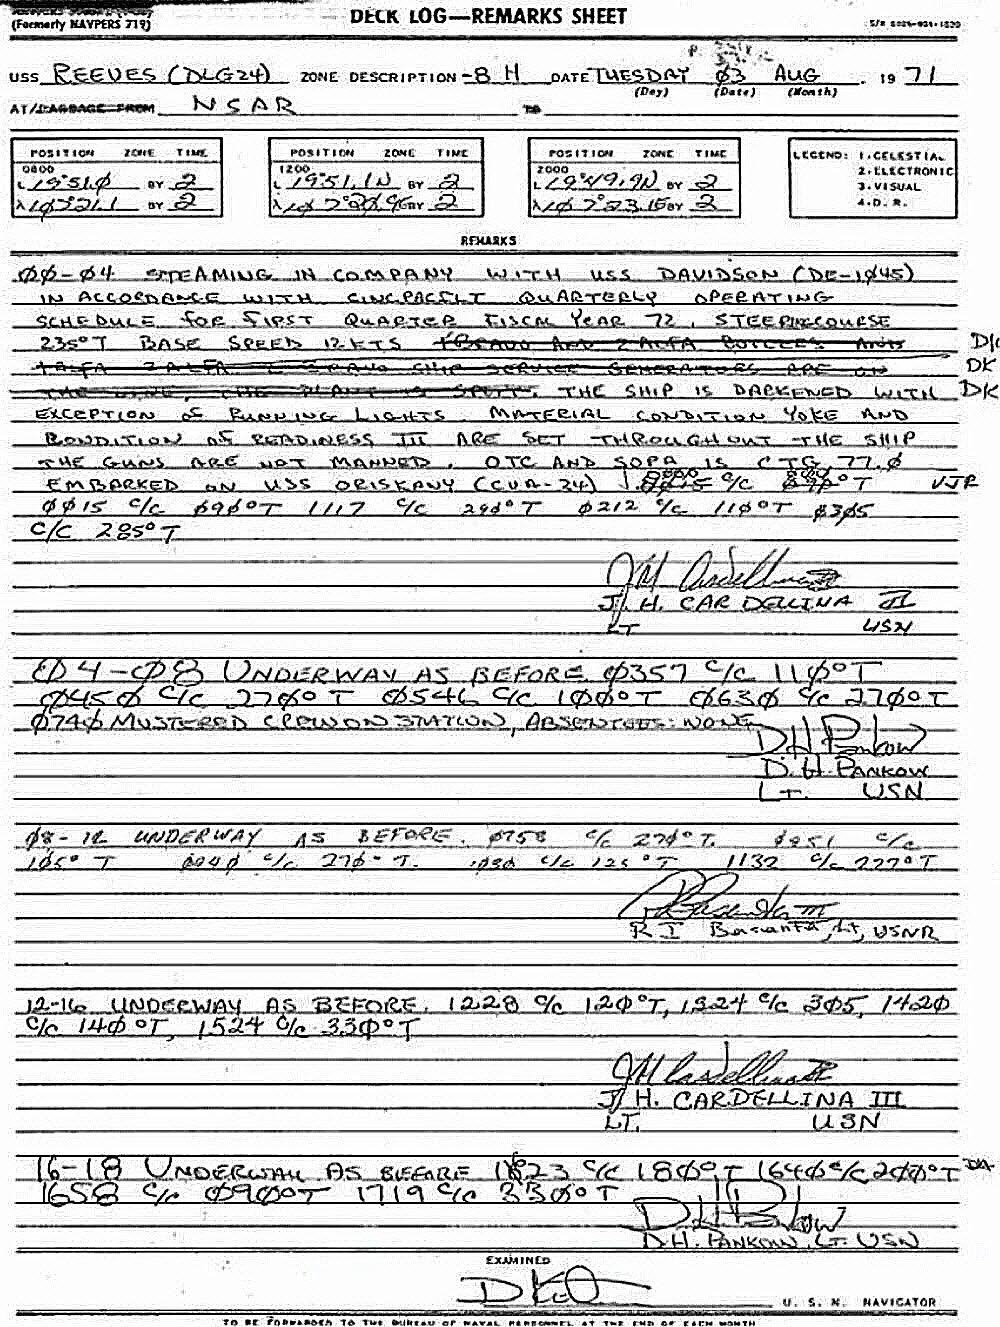 (Formerly NAVPERS 719)
DECK LOG—REMARKS SHEET
USS REEVES (DLG24) ZONE DESCRIPTION -8 H DATE TUESDAY Ø3 AUG 19 71
(Day) (Date) (Month)
AT/PASSAGE FROM NSAR TO
POSITION ZONE TIME
0800
L 19°51.Ø BY 2
λ BY 2
POSITION ZONE TIME
1200
L 19°51.1N BY 2
λ BY 2
POSITION ZONE TIME
2000
L 19°49.9N BY 2
λ 1Ø7°23.1E BY 2
LEGEND: 1. CELESTIAL
2. ELECTRONIC
3. VISUAL
4. D. R.
REMARKS
ØØ-Ø4 STEAMING IN COMPANY WITH USS DAVIDSON (DE-1Ø45)
IN ACCORDANCE WITH CINCPACFLT QUARTERLY OPERATING
SCHEDULE FOR FIRST QUARTER FISCAL YEAR 72. STEERING COURSE
235°T BASE SPEED 12 KTS 1 BRAVO AND 2 ALFA BOILERS AND
1 ALFA 2 ALFA 2 BRAVO SHIP SERVICE GENERATORS ARE ON DK
THE LINE, THE PLANT IS SPLIT. THE SHIP IS DARKENED WITH DK
EXCEPTION OF RUNNING LIGHTS. MATERIAL CONDITION YOKE AND
CONDITION OF READINESS III ARE SET THROUGHOUT THE SHIP
THE GUNS ARE NOT MANNED. OTC AND SOPA IS CTG 77.Ø
EMBARKED ON USS ORISKANY (CVA-34) C/C °T
ØØ15 C/C Ø9Ø°T 1117 C/C 29Ø°T Ø212 C/C 11Ø°T Ø3Ø5
C/C 285°T
J. H. CARDELLINA III
LT USN
Ø4-Ø8 UNDERWAY AS BEFORE Ø357 C/C 11Ø°T
Ø45Ø C/C 27Ø°T Ø546 C/C 1ØØ°T Ø63Ø C/C 27Ø°T
Ø74Ø MUSTERED CREW ON STATION, ABSENTEES: NONE
D. H. Pankow
D. H. PANKOW
LT. USN
Ø8-12 UNDERWAY AS BEFORE. Ø758 C/C 27Ø°T. C/C
1Ø5°T C/C 27Ø°T. C/C 125°T 1132 C/C 277°T
R I LT, USNR
12-16 UNDERWAY AS BEFORE. 1228 C/C 12Ø°T, 1324 C/C 3Ø5, 142Ø
C/C 14Ø°T, 1524 C/C 33Ø°T
J. H. CARDELLINA III
LT. USN
16-18 UNDERWAY AS BEFORE 1623 C/C 18Ø°T 164Ø C/C 2ØØ°T
1658 C/C Ø9Ø°T 1719 C/C 33Ø°T
D. H. Pankow
D.H. PANKOW, LT. USN
EXAMINED
U. S. N. NAVIGATOR
TO BE FORWARDED TO THE BUREAU OF NAVAL PERSONNEL AT THE END OF EACH MONTH